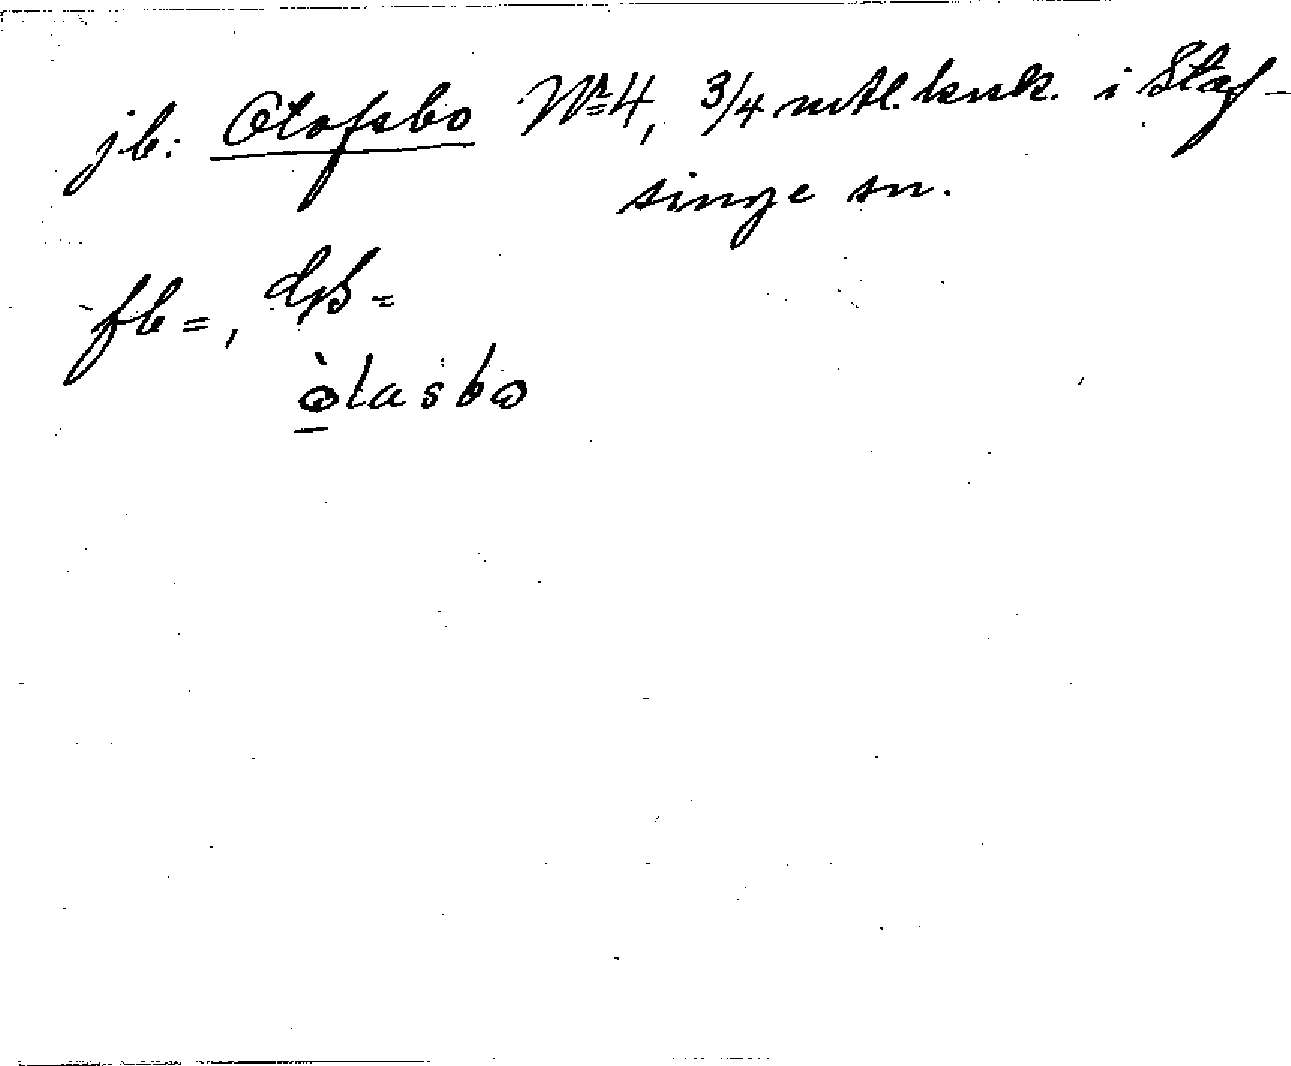 jb: Olofsbo Nº 4, 3/4 mtl. krsk. i Staf-
singe sn.
fb =, dß =
òlasbo